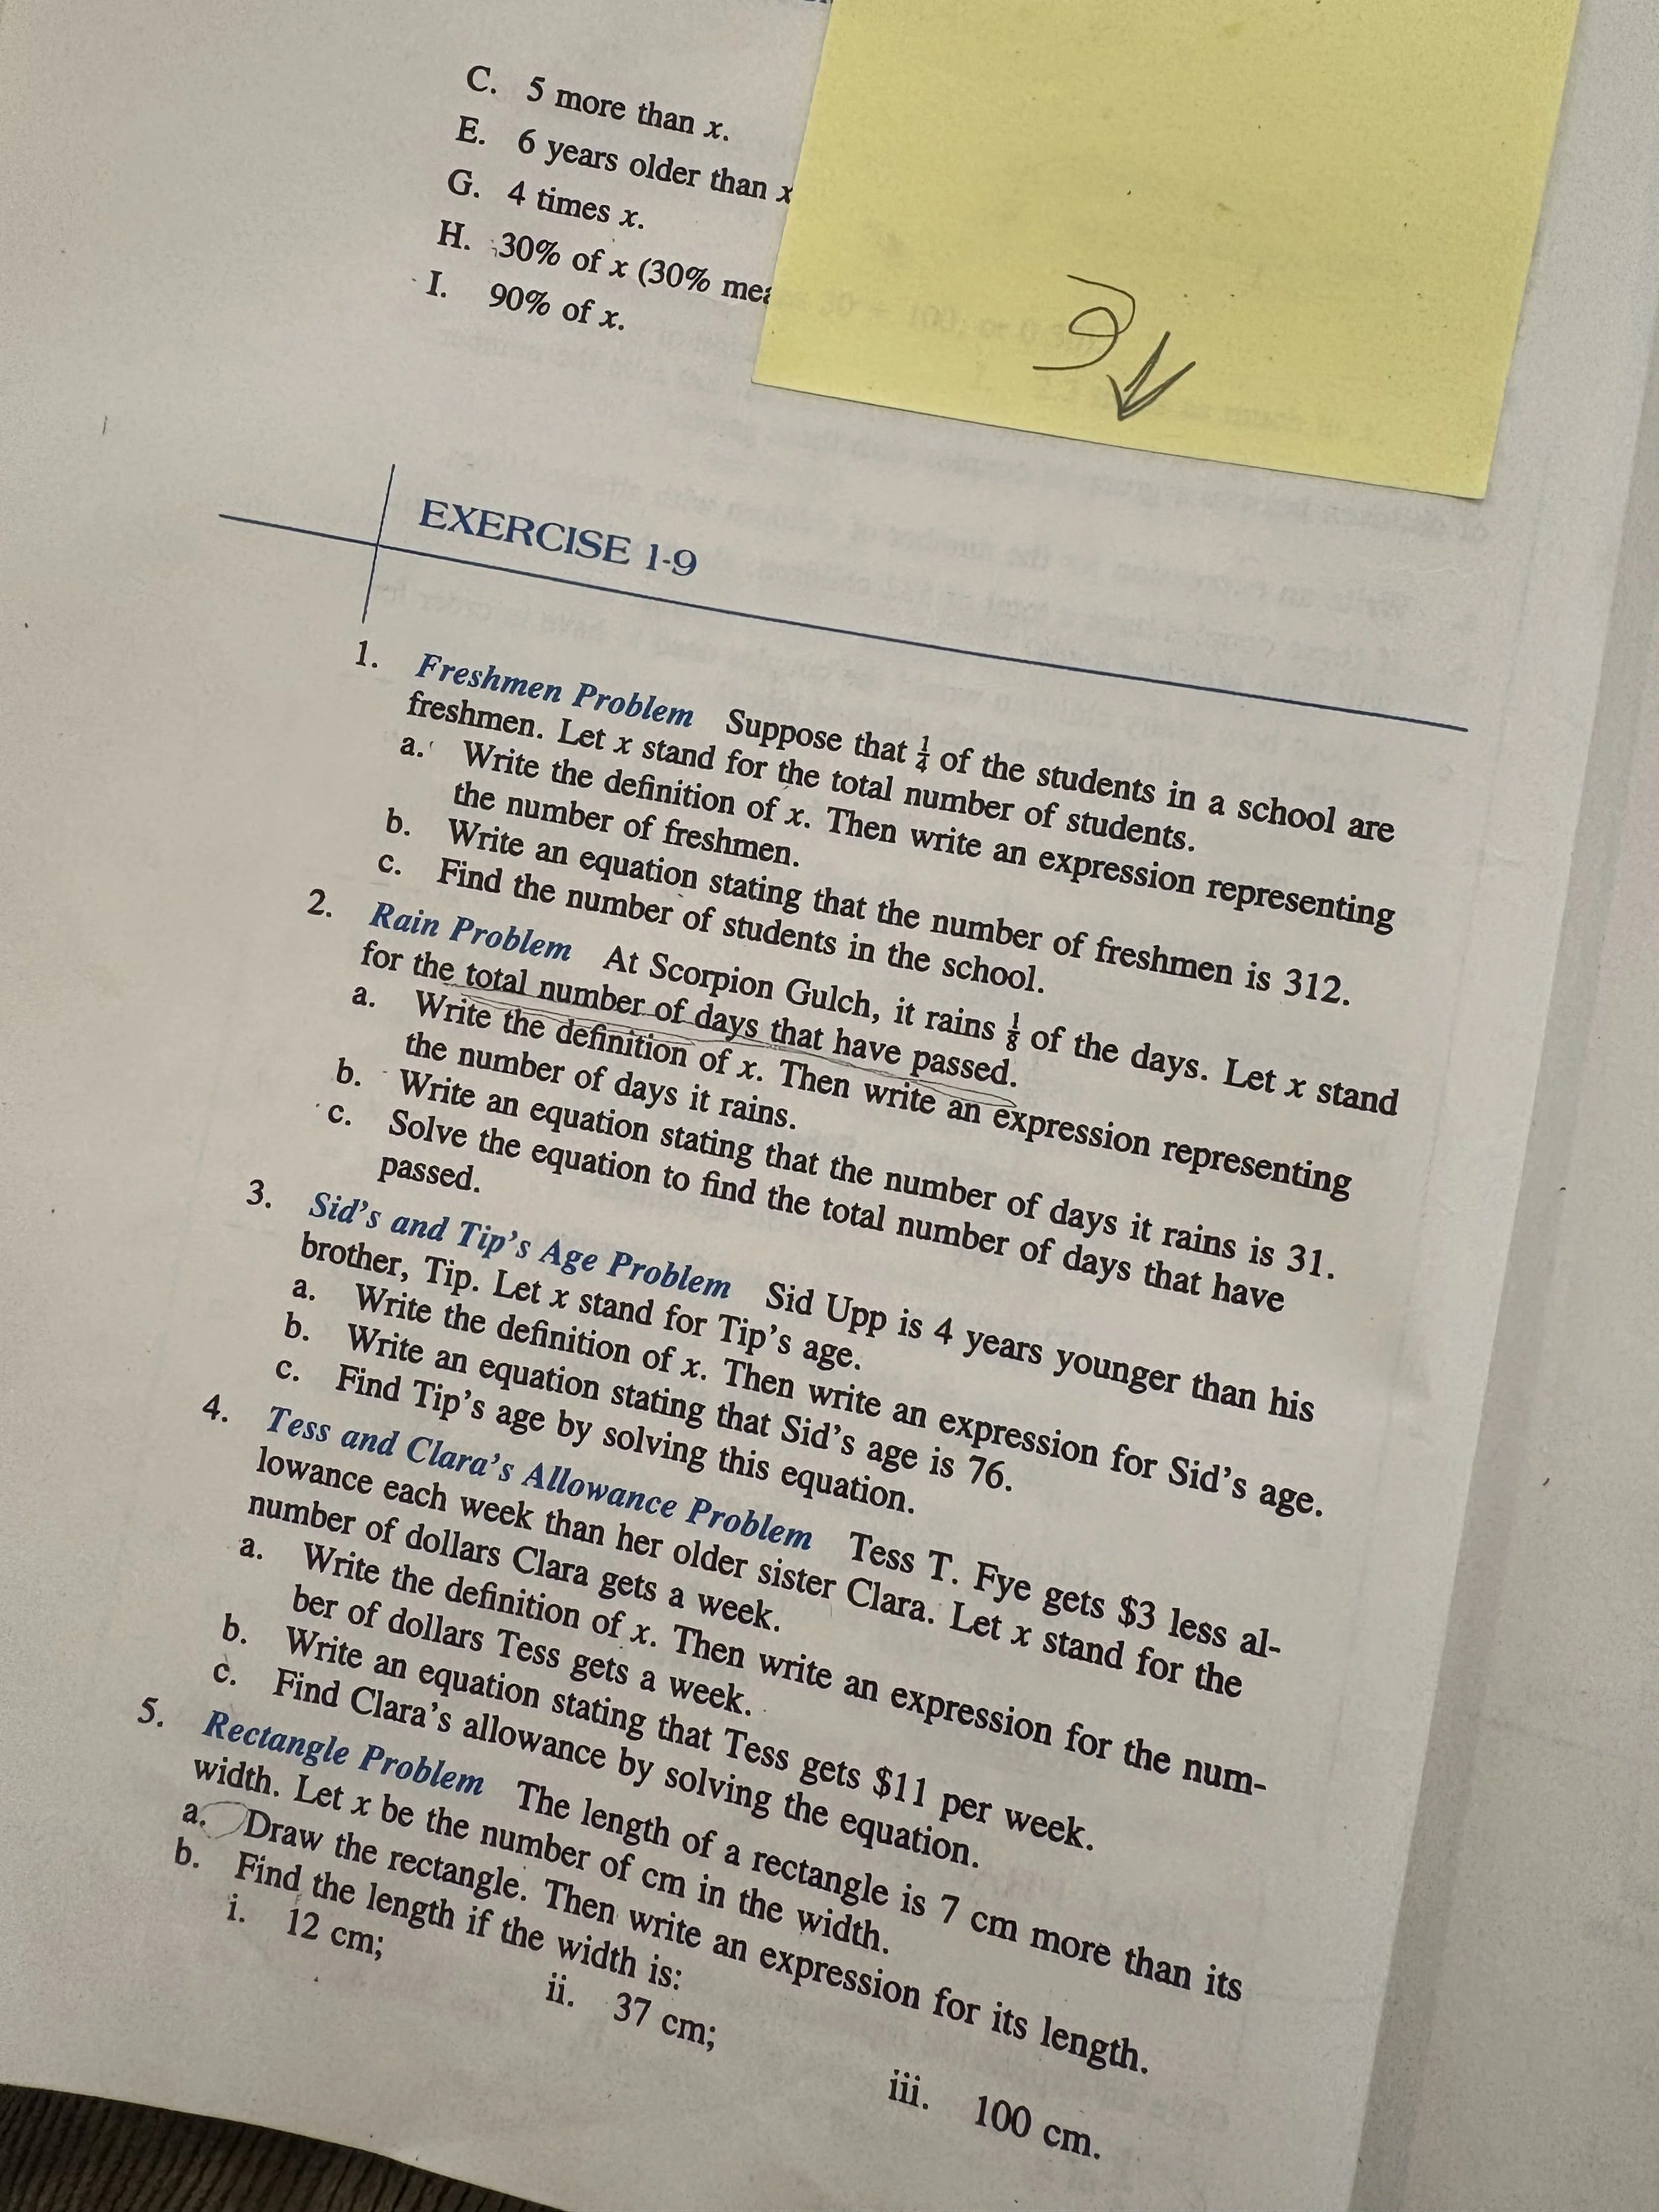 C. 5 more than x.
E. 6 years older than x
G. 4 times x.
H. 30% of x (30% mea
I. 90% of x.
EXERCISE 1-9
1. Freshmen Problem Suppose that 1/4 of the students in a school are
freshmen. Let x stand for the total number of students.
a. Write the definition of x. Then write an expression representing
the number of freshmen.
b. Write an equation stating that the number of freshmen is 312.
c. Find the number of students in the school.
2. Rain Problem At Scorpion Gulch, it rains 1/8 of the days. Let x stand
for the total number of days that have passed.
a. Write the definition of x. Then write an expression representing
the number of days it rains.
b. Write an equation stating that the number of days it rains is 31.
c. Solve the equation to find the total number of days that have
passed.
3. Sid's and Tip's Age Problem Sid Upp is 4 years younger than his
brother, Tip. Let x stand for Tip's age.
a. Write the definition of x. Then write an expression for Sid's age.
b. Write an equation stating that Sid's age is 76.
c. Find Tip's age by solving this equation.
4. Tess and Clara's Allowance Problem Tess T. Fye gets $3 less al-
lowance each week than her older sister Clara. Let x stand for the
number of dollars Clara gets a week.
a. Write the definition of x. Then write an expression for the num-
ber of dollars Tess gets a week.
b. Write an equation stating that Tess gets $11 per week.
c. Find Clara's allowance by solving the equation.
5. Rectangle Problem The length of a rectangle is 7 cm more than its
width. Let x be the number of cm in the width.
a. Draw the rectangle. Then write an expression for its length.
b. Find the length if the width is:
i. 12 cm; ii. 37 cm; iii. 100 cm.